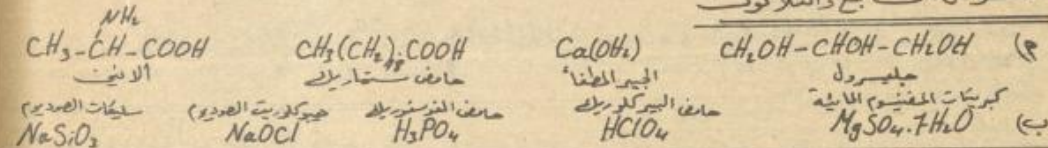 NH₂
م) CH₂OH-CHOH-CH₂OH Ca(OH₂) CH₃(CH₂)₁₈.COOH CH₃-CH-COOH
جليسرول الجير المطفأ حامض ستاريك الانين
كبريتات المغنسيوم المائية حامض البيركلوريك حامض الفوسفوريك هيبوكلوريت الصوديوم سليكات الصوديوم
ب) MgSO₄.7H₂O HClO₄ H₃PO₄ NaOCl NaSiO₃